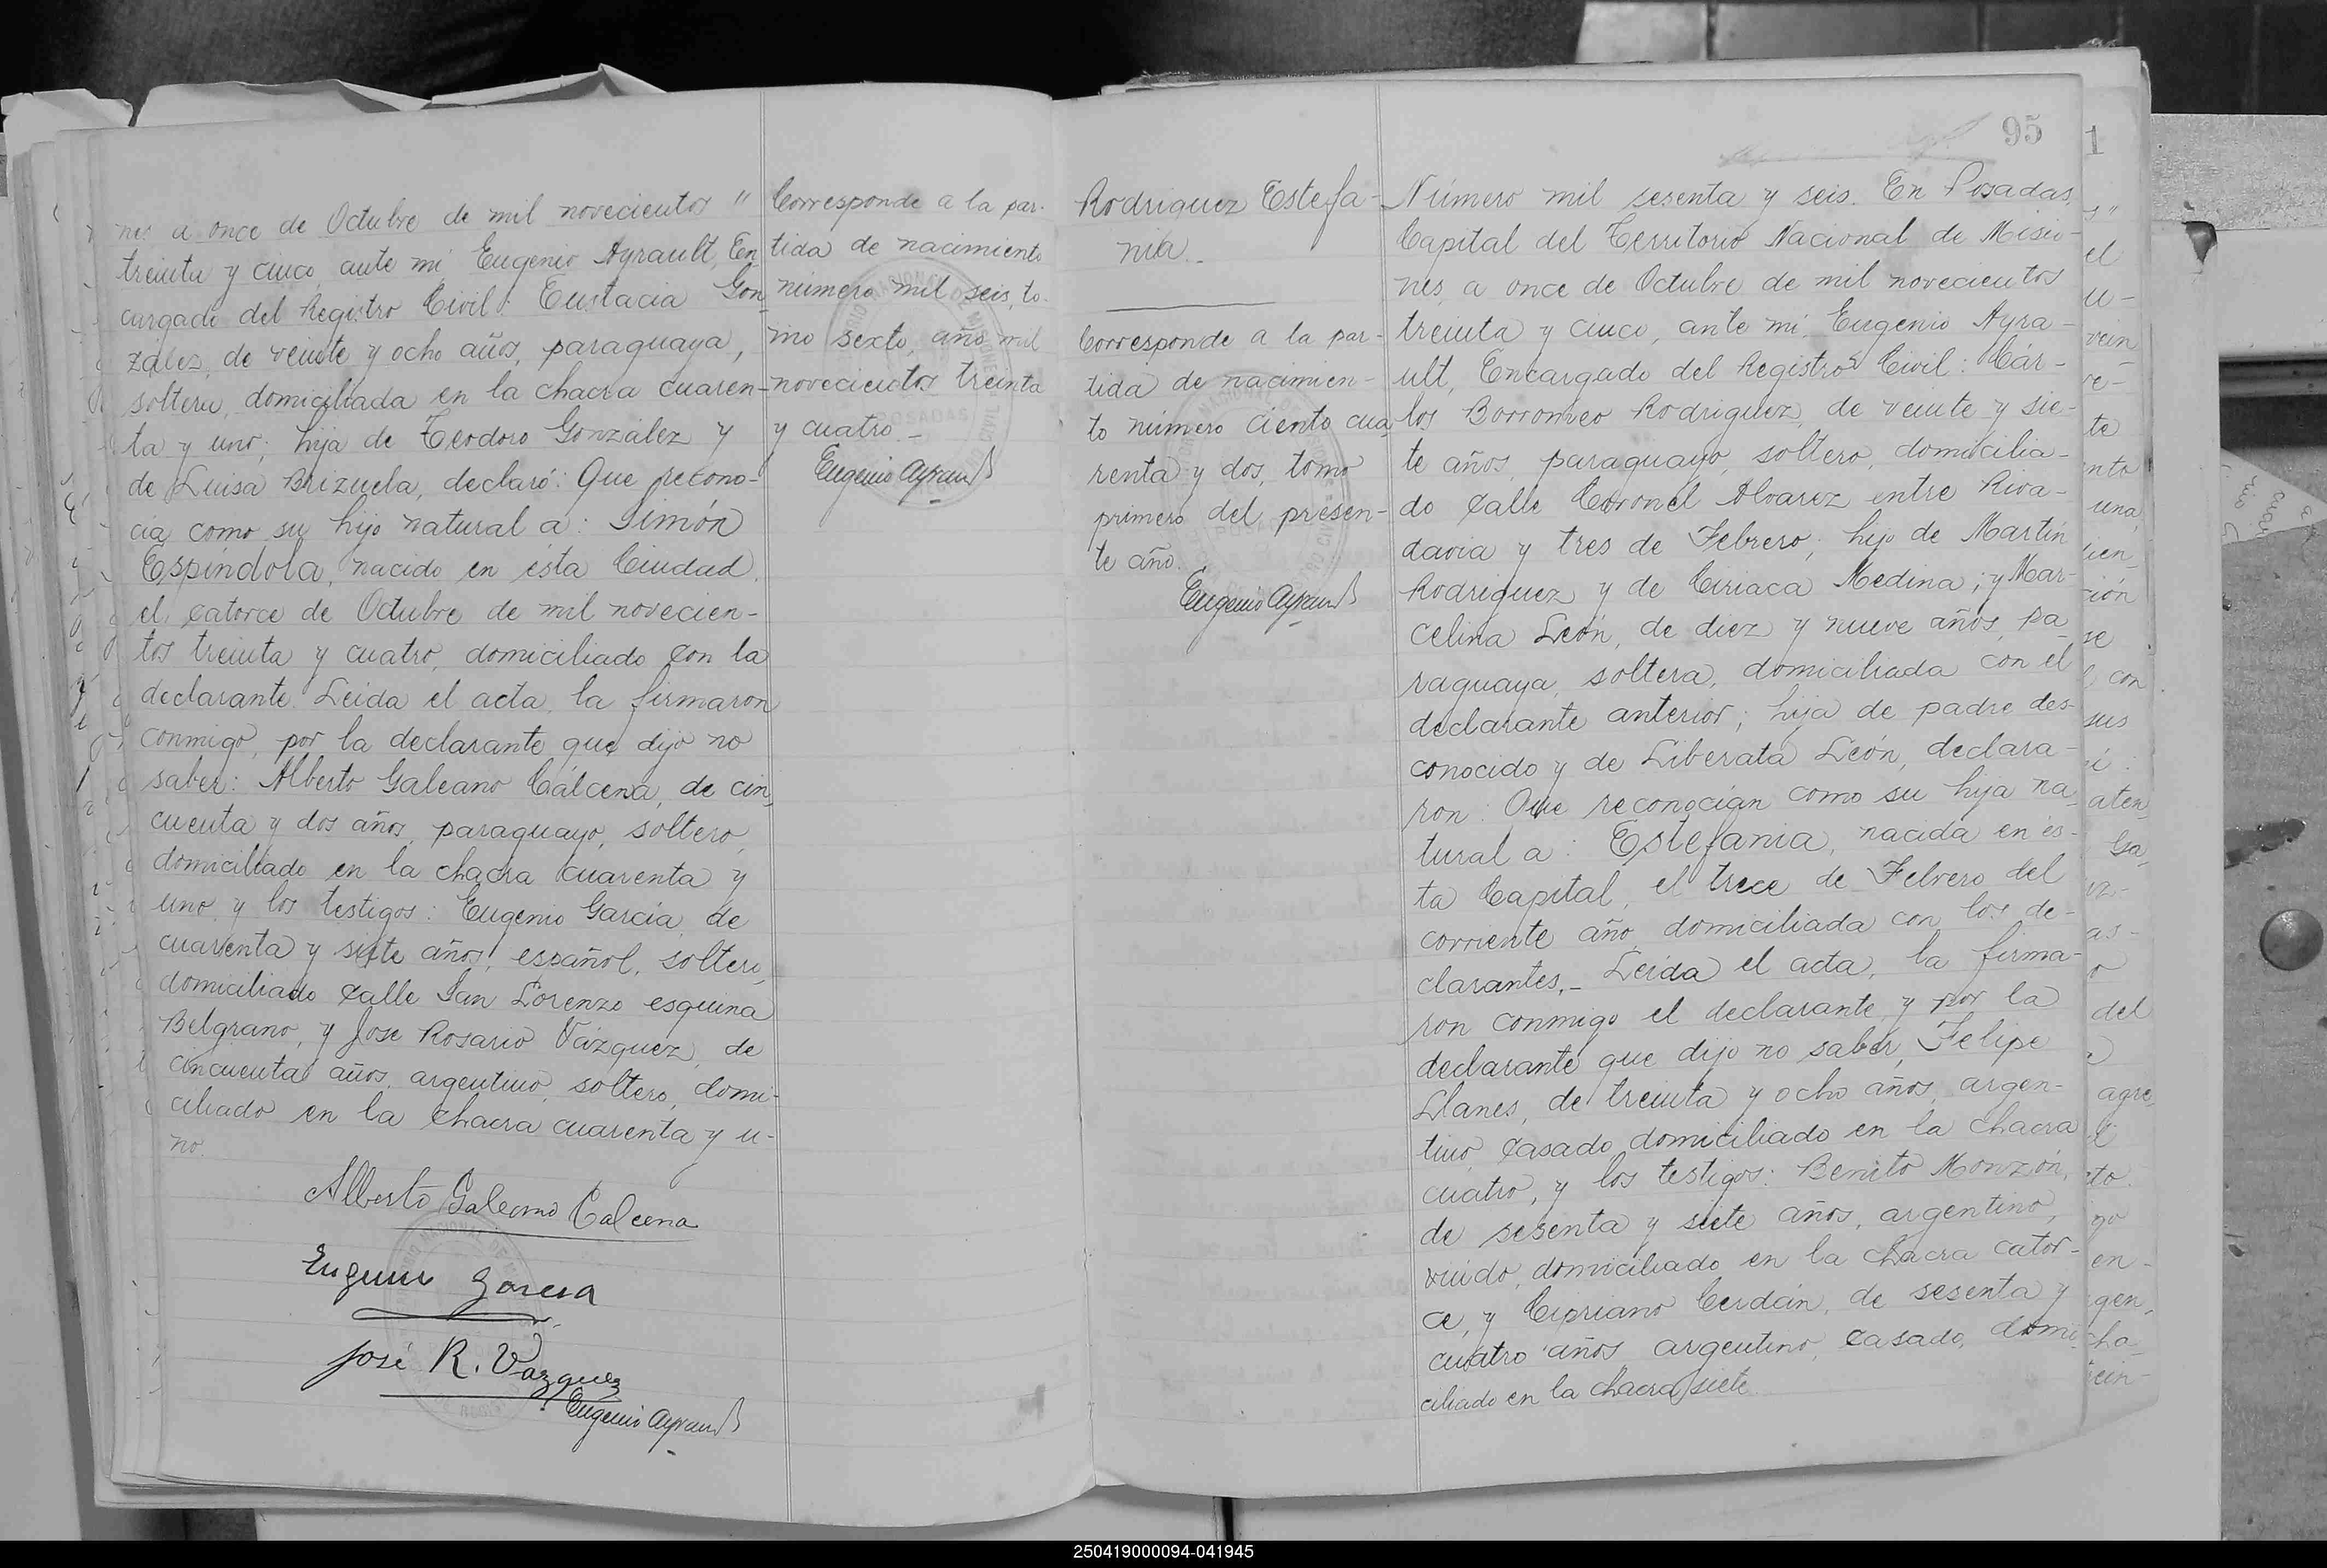 nes a once de Octubre de mil novecientos "
treinta y cinco, ante mi Eugenio Ayrault, En
cargado del Registro Civil: Eustacia Gon
zález, de veinte y ocho años, paraguaya,
soltera, domiciliada en la chacra cuaren-
ta y uno; hija de Teodoro González y
de Luisa Brizuela, declaró: Que recono-
cia como su hijo natural a: Simón
Espíndola, nacido en ésta Ciudad,
el catorce de Octubre de mil novecien-
tos treinta y cuatro, domiciliado con la
declarante. Leida el acta, la firmaron
conmigo, por la declarante que dijo no
saber: Alberto Galeano Cálcena, de cin
cuenta y dos años, paraguayo, soltero,
domiciliado en la chacra cuarenta y
uno y los testigos: Eugenio García, de
cuarenta y siete años, español, soltero,
domiciliado calle San Lorenzo esquina
Belgrano, y Jose Rosario Vázquez, de
cincuenta años, argentino, soltero, domi-
ciliado en la chacra cuarenta y u-
no.
Alberto Galeano Calcena
Eugenio Garcia
José R. Vazquez
Eugenio Ayrault
Corresponde a la par-
tida de nacimiento
número mil seis, to-
mo sexto, año mil
novecientos treinta
y cuatro.-
Eugenio Ayrault
95
Rodriguez Estefa-
nia.-
Corresponde a la par-
tida de nacimien-
to número ciento cua
renta y dos, tomo
primero del presen-
te año.
Eugenio Ayrault
Número mil sesenta y seis. En Posadas,
Capital del Territorio Nacional de Misio-
nes, a once de Octubre de mil novecientos
treinta y cinco, ante mi, Eugenio Ayra-
ult, Encargado del Registro Civil: Cár-
los Borromeo Rodriguez, de veinte y sie-
te años, paraguayo, soltero, domicilia-
do calle Coronel Alvarez entre Riva-
davia y tres de Febrero; hijo de Martín
Rodriguez y de Ciriaca Medina; y Mar-
celina León, de diez y nueve años, pa
raguaya, soltera, domiciliada con el
declarante anterior; hija de padre des-
conocido y de Liberata León, declara-
ron: Que reconocían como su hija na
tural a: Estefania, nacida en és-
ta Capital, el trece de Febrero del
corriente año, domiciliada con los de-
clarantes.- Leída el acta, la firma-
ron conmigo el declarante, y por la
declarante que dijo no saber, Felipe
Llanes, de treinta y ocho años, argen-
tino, casado, domiciliado en la chacra
cuatro, y los testigos: Benito Monzón,
de sesenta y siete años, argentino,
viudo, domiciliado en la chacra cator-
ce, y Cipriano Cerdán, de sesenta y
cuatro años, argentino, casado, domi
ciliado en la chacra siete.
250419000094-041945